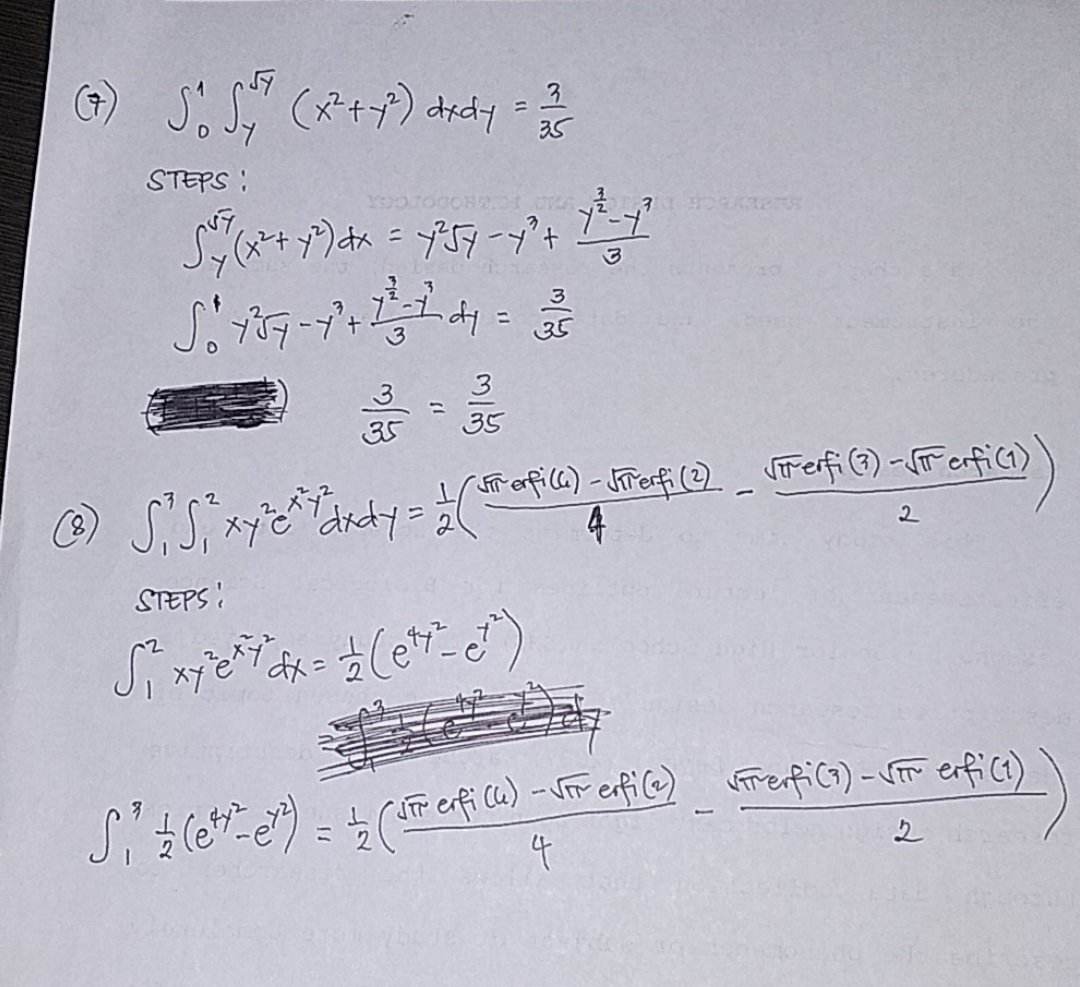 (7) ∫₀¹ ∫_y^√y (x²+y²) dxdy = 3/35
STEPS:
∫_y^√y (x²+y²) dx = y²√y - y³ + (y^(3/2) - y³)/3
∫₀¹ y²√y - y³ + (y^(3/2) - y³)/3 dy = 3/35
3/35 = 3/35
(8) ∫₁³ ∫₁² xy²e^(x²y²) dxdy = 1/2 ((√π erfi(6) - √π erfi(2))/4 - (√π erfi(3) - √π erfi(1))/2)
STEPS:
∫₁² xy²e^(x²y²) dx = 1/2 (e^(4y²) - e^(y²))
∫₁³ 1/2 (e^(4y²) - e^(y²)) = 1/2 ((√π erfi(6) - √π erfi(2))/4 - (√π erfi(3) - √π erfi(1))/2)